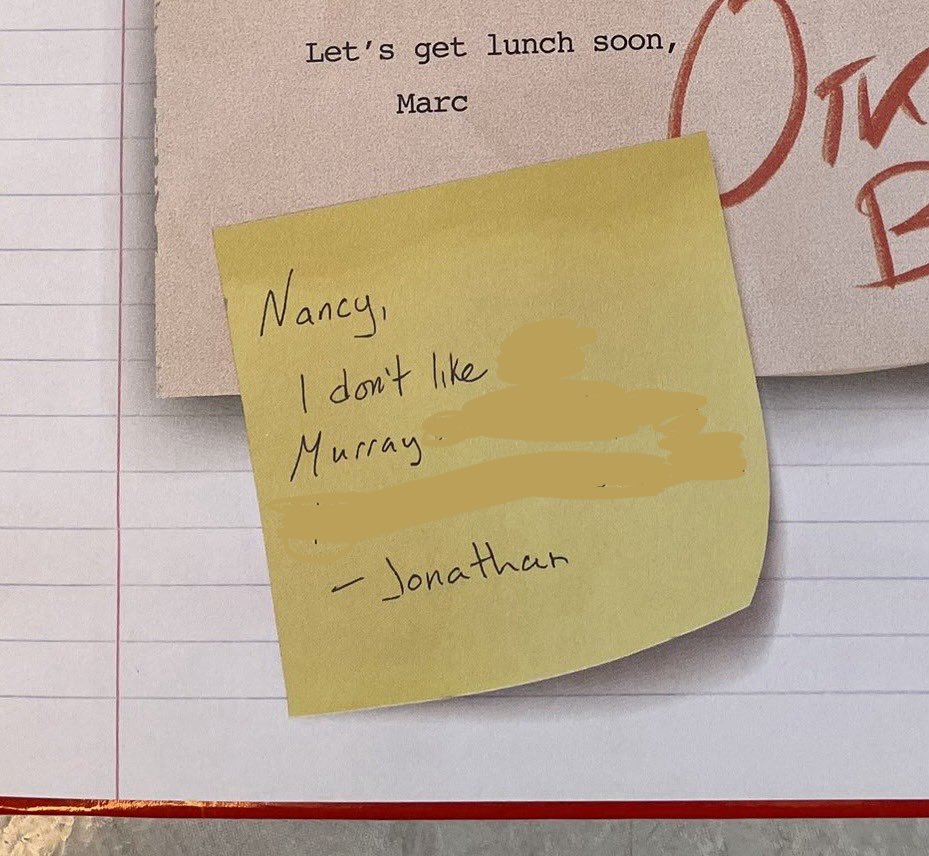 Let's get lunch soon,
Marc
Nancy,
I don't like
Murray
- Jonathan